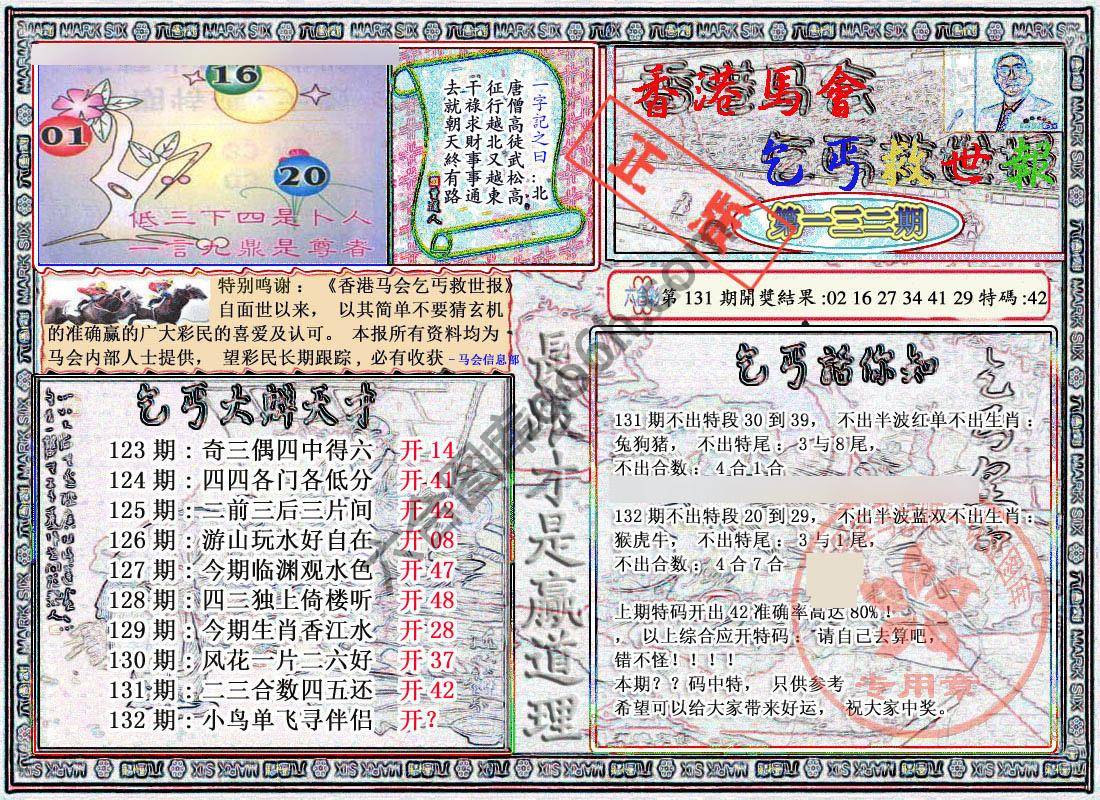 香港馬會
乞丐救世報
第一三二期
正版
16
01
20
低三下四是卜人
一言九鼎是尊者
一字記之曰：北
唐僧高徒武松高
征行越北又越東
干祿求財事事通
去就朝天終有路
曾道人
特别鸣谢：《香港马会乞丐救世报》
自面世以来， 以其简单不要猜玄机
的准确赢的广大彩民的喜爱及认可。 本报所有资料均为
马会内部人士提供， 望彩民长期跟踪，必有收获 -马会信息部
第 131 期開獎結果:02 16 27 34 41 29 特碼:42
乞丐大解天才
123 期：奇三偶四中得六 开 14
124 期：四四各门各低分 开 41
125 期：二前三后三片间 开 42
126 期：游山玩水好自在 开 08
127 期：今期临渊观水色 开 47
128 期：四二独上倚楼听 开 48
129 期：今期生肖香江水 开 28
130 期：风花一片二六好 开 37
131 期：二三合数四五还 开 42
132 期：小鸟单飞寻伴侣 开？
才是赢道理
乞丐話你知
131 期不出特段 30 到 39， 不出半波红单不出生肖：
兔狗猪， 不出特尾：3 与 8 尾，
不出合数：4 合 1 合
132 期不出特段 20 到 29， 不出半波蓝双不出生肖：
猴虎牛， 不出特尾：3 与 1 尾，
不出合数：4 合 7 合
上期特码开出 42 准确率高达 80%！
， 以上综合应开特码： 请自己去算吧，
错不怪！！！！
本期？？码中特， 只供参考
希望可以给大家带来好运， 祝大家中奖。
专用章
六合图库
MARK SIX